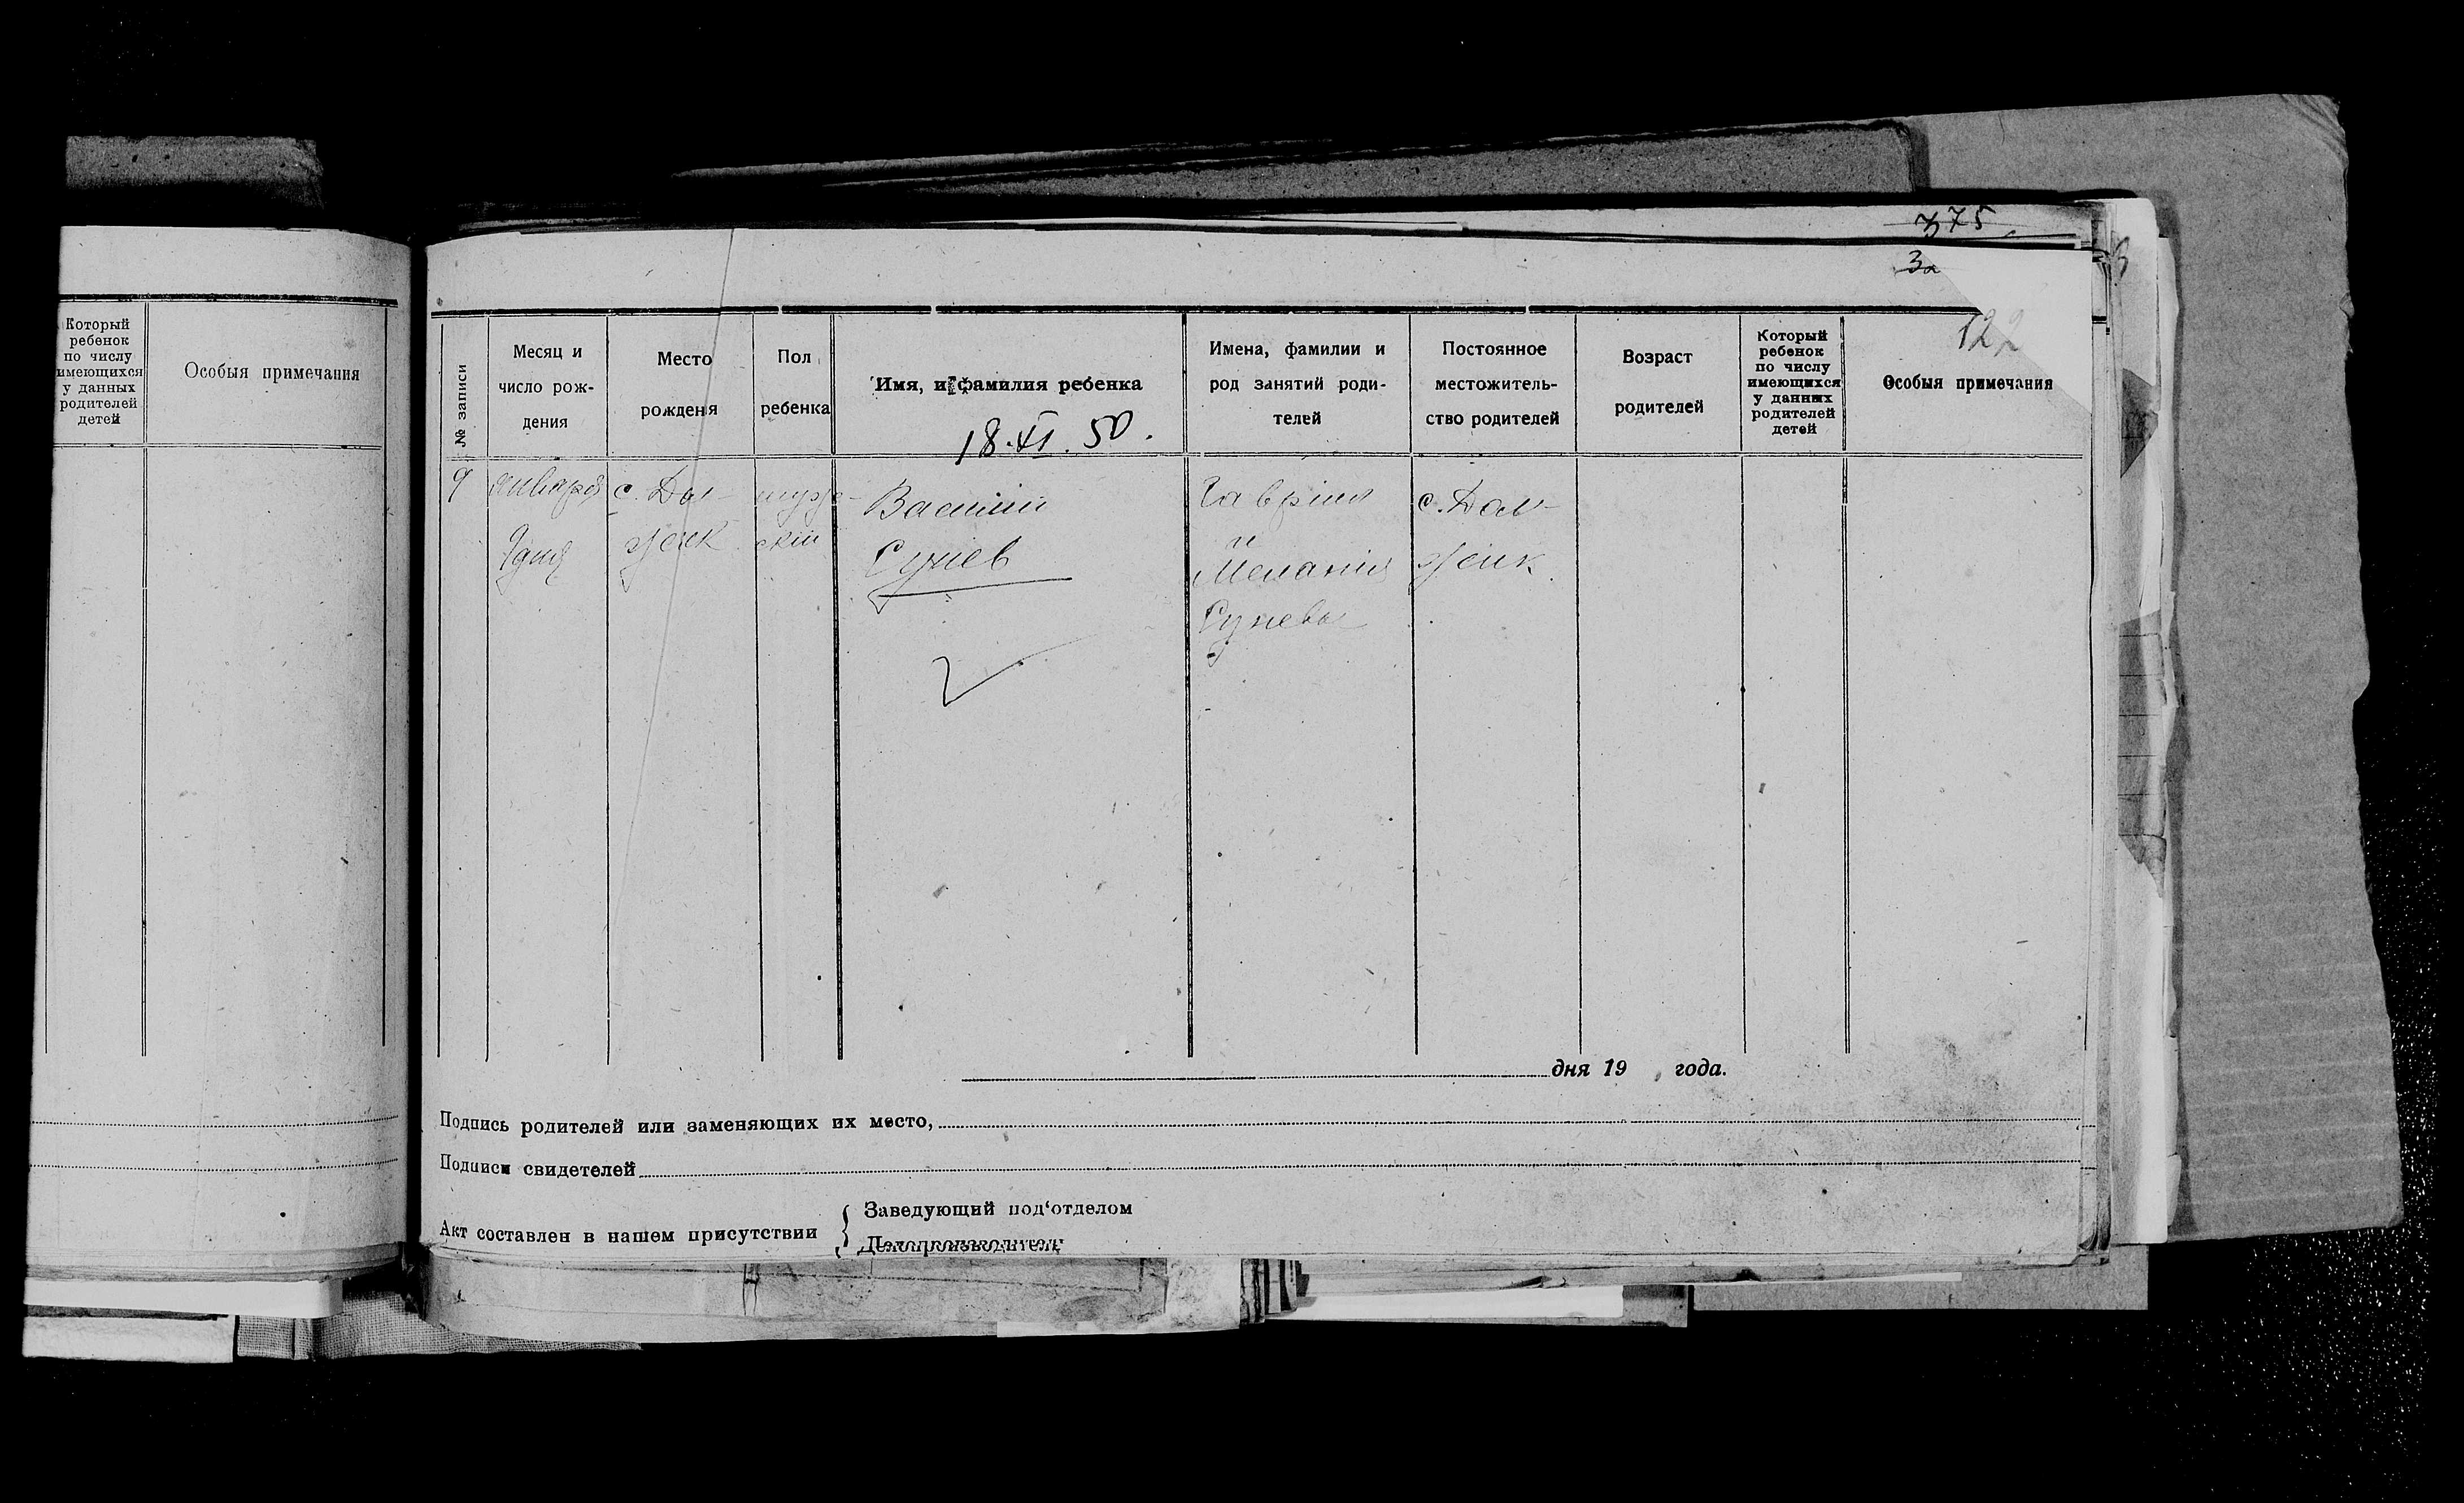 375
3а
122
Который
ребенок
по числу
имеющихся
у данных
родителей
детей
Особыя примечания
№ записи
Месяц и
число рож-
дения
Место
рожденя
Пол
ребенка
Имя, и фамилия ребенка
18.XI.50.
Имена, фамилии и
род занятий роди-
телей
Постоянное
местожитель-
ство родителей
Возраст
родителей
Который
ребенок
по числу
имеющихся
у данных
родителей
детей
Особыя примечания
9
января
9 дня
с. Дал-
мужс-
скій
Василій
Гавріил
и
Меланія
с. Дал-
дня 19 года.
Подпись родителей или заменяющих их место,
Подписи свидетелей
Акт составлен в нашем присутствии
Заведующий под‘отделом
Делопроизводитель